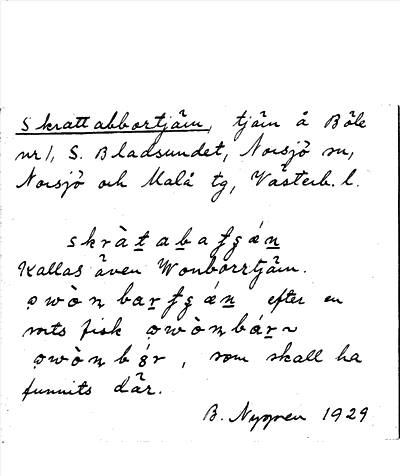 Skrattabbortjärn, tjärn å Böle
nr 1, S. Bladsundet, Norsjö sn,
Norsjö och Malå tg, Västerb. l.
skràt̲ab̲afgán̲
Kallas även Wonborrtjärn.
wòn bar̲fgán̲ efter en
sorts fisk wònbár̲~
wònbər, som skall ha
funnits där.
B. Nygren 1929